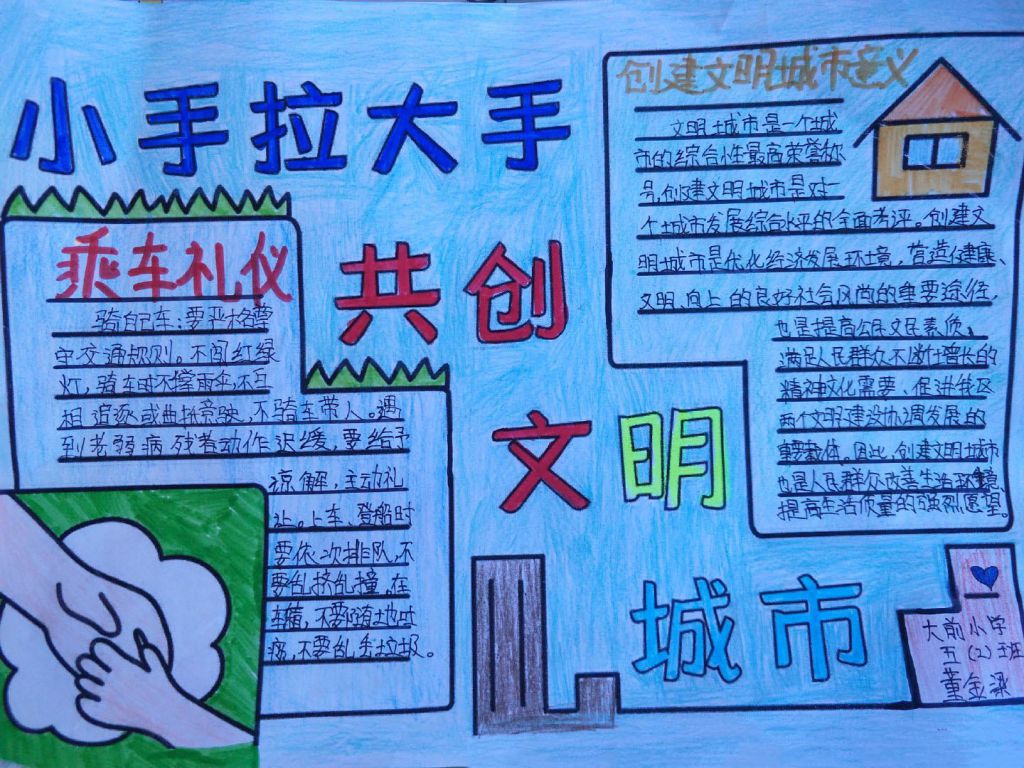 小手拉大手
共创
文明
城市
乘车礼仪
骑自己车：要严格尊
守交通规则。不闯红绿
灯，骑车时不撑雨伞，不互
相追逐或曲折竞驶，不骑车带人。遇
到老弱病残者动作迟缓，要给予
谅解，主动礼
让。上车、登船时
要依次排队，不
要乱挤乱撞。在
车辆，不要随地吐
痰，不要乱丢垃圾。
创建文明城市意义
文明城市是一个城
市的综合性最高荣誉称
号，创建文明城市是对一
个城市发展综合水平的全面考评。创建文
明城市是优化经济发展环境，营造健康、
文明、向上的良好社会风尚的重要途径，
也是提高公民文民素质、
满足人民群众不断增长的
精神文化需要、促进我区
两个文明建设协调发展的
重要载体。因此，创建文明城市
也是人民群众改善生活环境、
提高生活质量的强烈愿望。
大前小学
五（2）班
董金梁